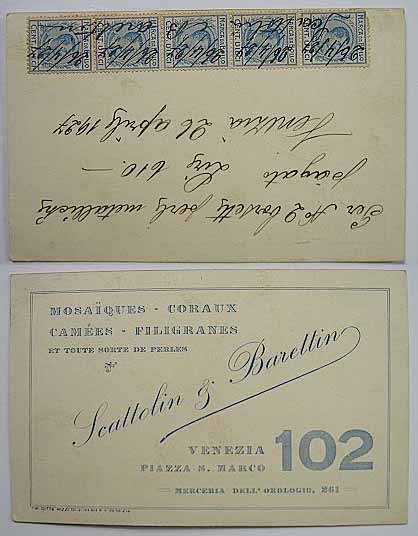 Per N° 2 borsette perle metalliche
pagato Lire 610.—
Venezia 26 aprile 1927
26/4/27 26/4/27 26/4/27 26/4/27 26/4/27
MOSAÏQUES - CORAUX
CAMÉES - FILIGRANES
ET TOUTE SORTE DE PERLES
Scattolin & Barettin
VENEZIA 102
PIAZZA S. MARCO
MERCERIA DELL' OROLOGIO, 261